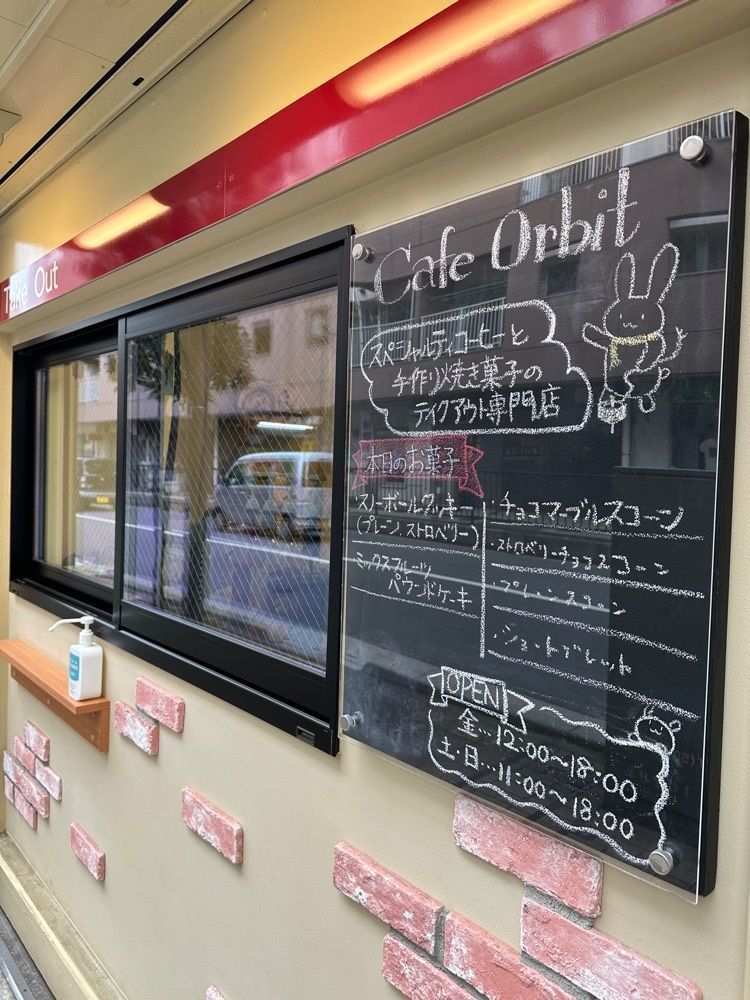 Take Out
Cafe Orbit
スペシャルティコーヒーと
手作り焼き菓子の
テイクアウト専門店
本日のお菓子
・スノーボールクッキー
(プレーン、ストロベリー)
ミックスフルーツ
パウンドケーキ
・チョコマーブルスコーン
・ストロベリーチョコスコーン
・プレーンスコーン
・ショートブレット
OPEN
金…12:00〜18:00
土・日…11:00〜18:00